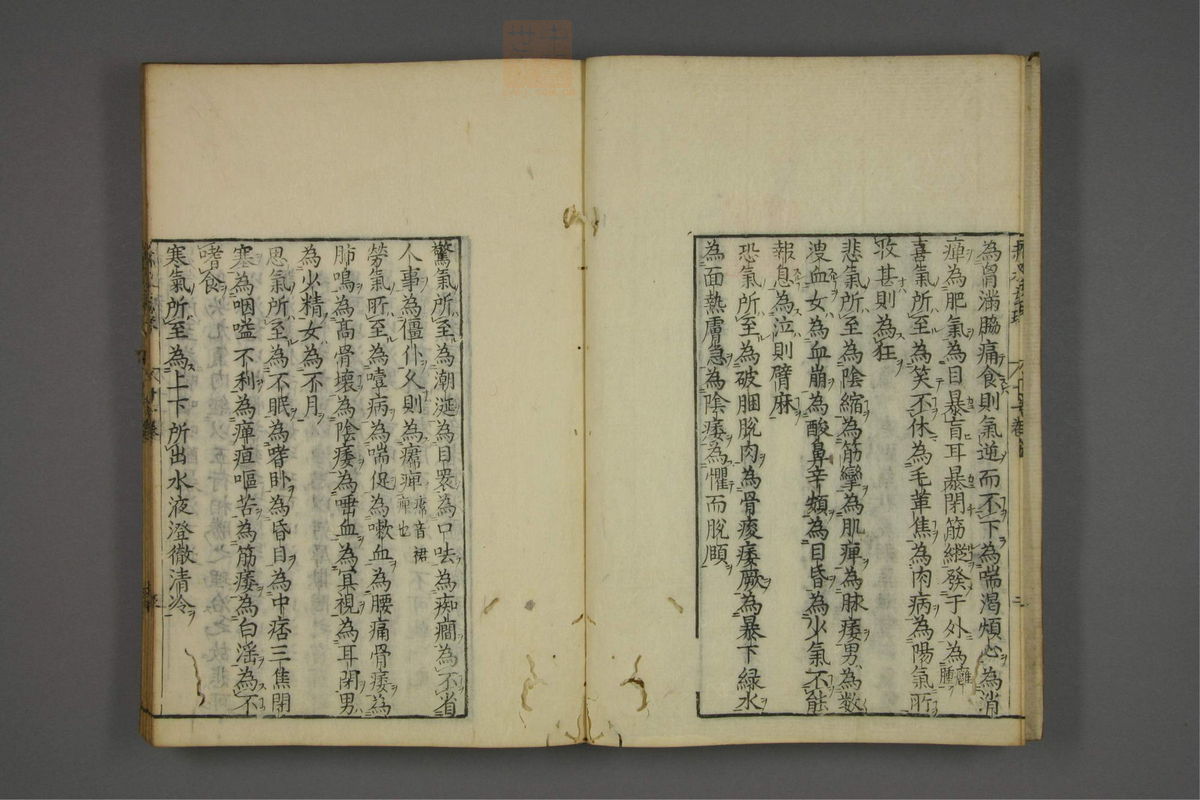 為胷滿脇痛食則氣逆而不下為喘渴煩心為消
癉為肥氣為目暴盲耳暴閉筋縱發于外為癰腫
喜氣所至為笑不休為毛革焦為肉病為陽氣所不
收甚則為狂
悲氣所至為陰縮為筋攣為肌痺為脉痿男為數
溲血女為血崩為酸鼻辛頞為目昏為少氣不能
報息為泣則臂麻
恐氣所至為破䐃脫肉為骨痠痿厥為暴下緑水
為面熱膚急為陰痿為懼而脫頤
驚氣所至為潮涎為目睘為口呿為痴癎為不省
人事為僵仆久則為㿏痺㿏音裙痺也
勞氣所至為噎病為喘促為嗽血為腰痛骨痿為
肺鳴為髙骨壞為陰痿為唾血為冥視為耳閉男
為少精女為不月
思氣所至為不眠為嗜卧為昏目為中痞三焦閉
塞為咽嗌不利為癉疸嘔苦為筋痿為白淫為不
嗜食
寒氣所至為上下所出水液澄徹清冷